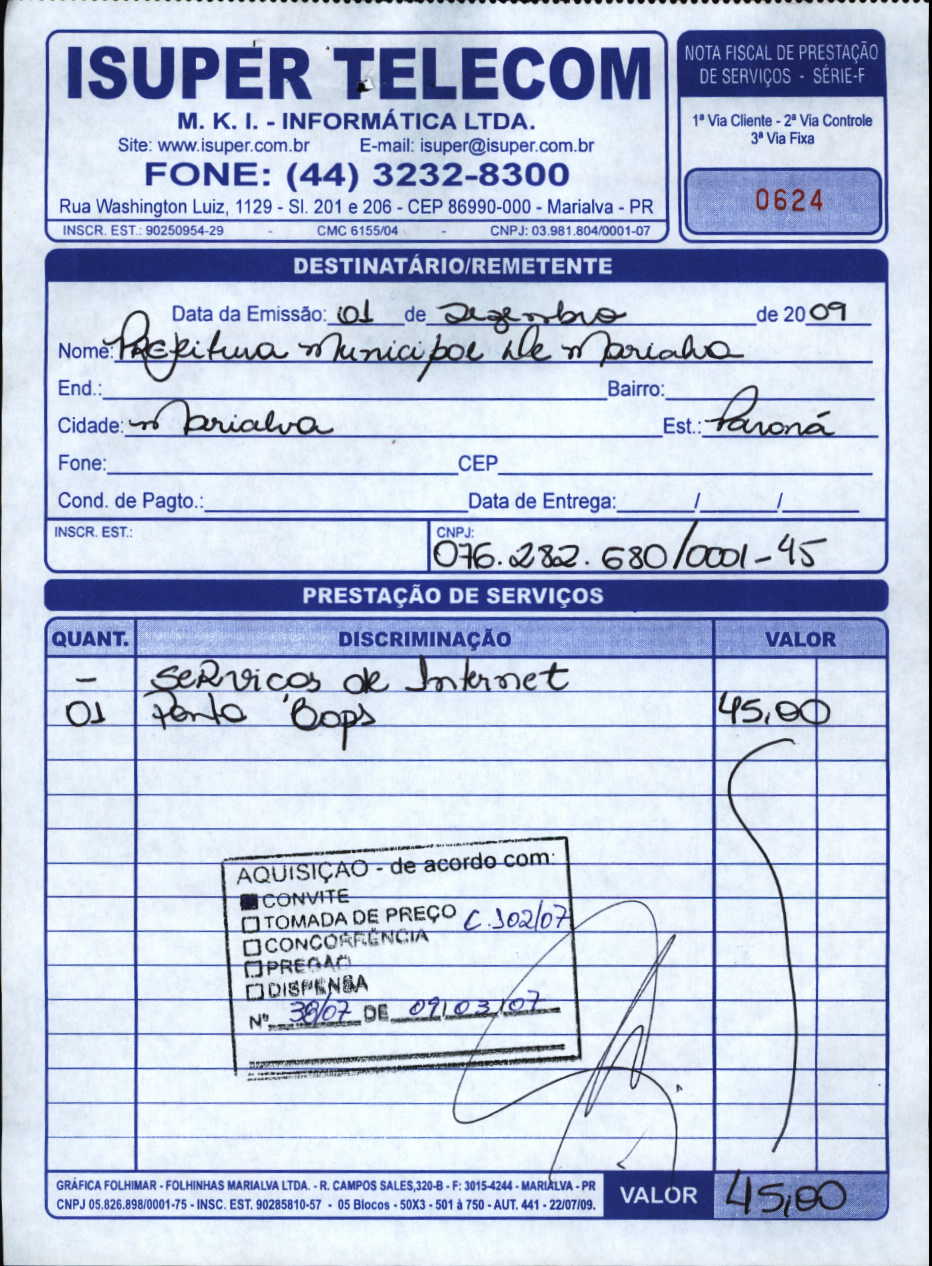 ISUPER TELECOM
M. K. I. - INFORMÁTICA LTDA.
Site: www.isuper.com.br E-mail: isuper@isuper.com.br
FONE: (44) 3232-8300
Rua Washington Luiz, 1129 - Sl. 201 e 206 - CEP 86990-000 - Marialva - PR
INSCR. EST.: 90250954-29 - CMC 6155/04 - CNPJ: 03.981.804/0001-07
NOTA FISCAL DE PRESTAÇÃO
DE SERVIÇOS - SÉRIE-F
1ª Via Cliente - 2ª Via Controle
3ª Via Fixa
0624
DESTINATÁRIO/REMETENTE
Data da Emissão: 01 de Dezembro de 2009
Nome: Prefeitura Municipal de Marialva
End.: Bairro:
Cidade: Marialva Est.: Paraná
Fone: CEP
Cond. de Pagto.: Data de Entrega: / /
INSCR. EST.: CNPJ:
076.282.680/0001-45
PRESTAÇÃO DE SERVIÇOS
QUANT. DISCRIMINAÇÃO VALOR
- Serviços de Internet
01 Ponto Bops 45,00
AQUISIÇÃO - de acordo com:
CONVITE
TOMADA DE PREÇO C.102/07
CONCORRÊNCIA
PREGÃO
DISPENSA
Nº 36/07 DE 09/03/07
GRÁFICA FOLHIMAR - FOLHINHAS MARIALVA LTDA. - R. CAMPOS SALES,320-B - F: 3015-4244 - MARIALVA - PR
CNPJ 05.826.898/0001-75 - INSC. EST. 90285810-57 - 05 Blocos - 50X3 - 501 à 750 - AUT. 441 - 22/07/09.
VALOR 45,00